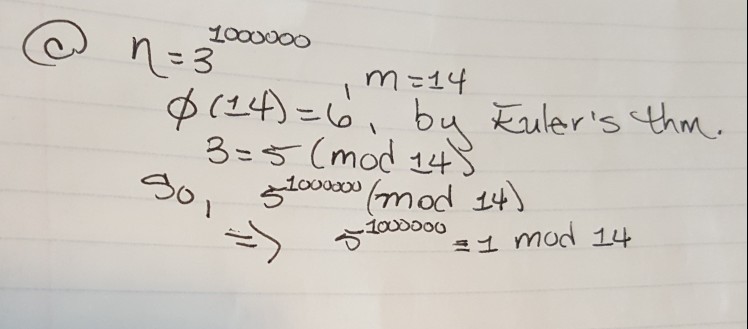 ⓐ n = 3^1000000
, m = 14
φ(14) = 6, by Euler's thm.
3 = 5 (mod 14)
So, 5^1000000 (mod 14)
⇒ 5^1000000 ≡ 1 mod 14